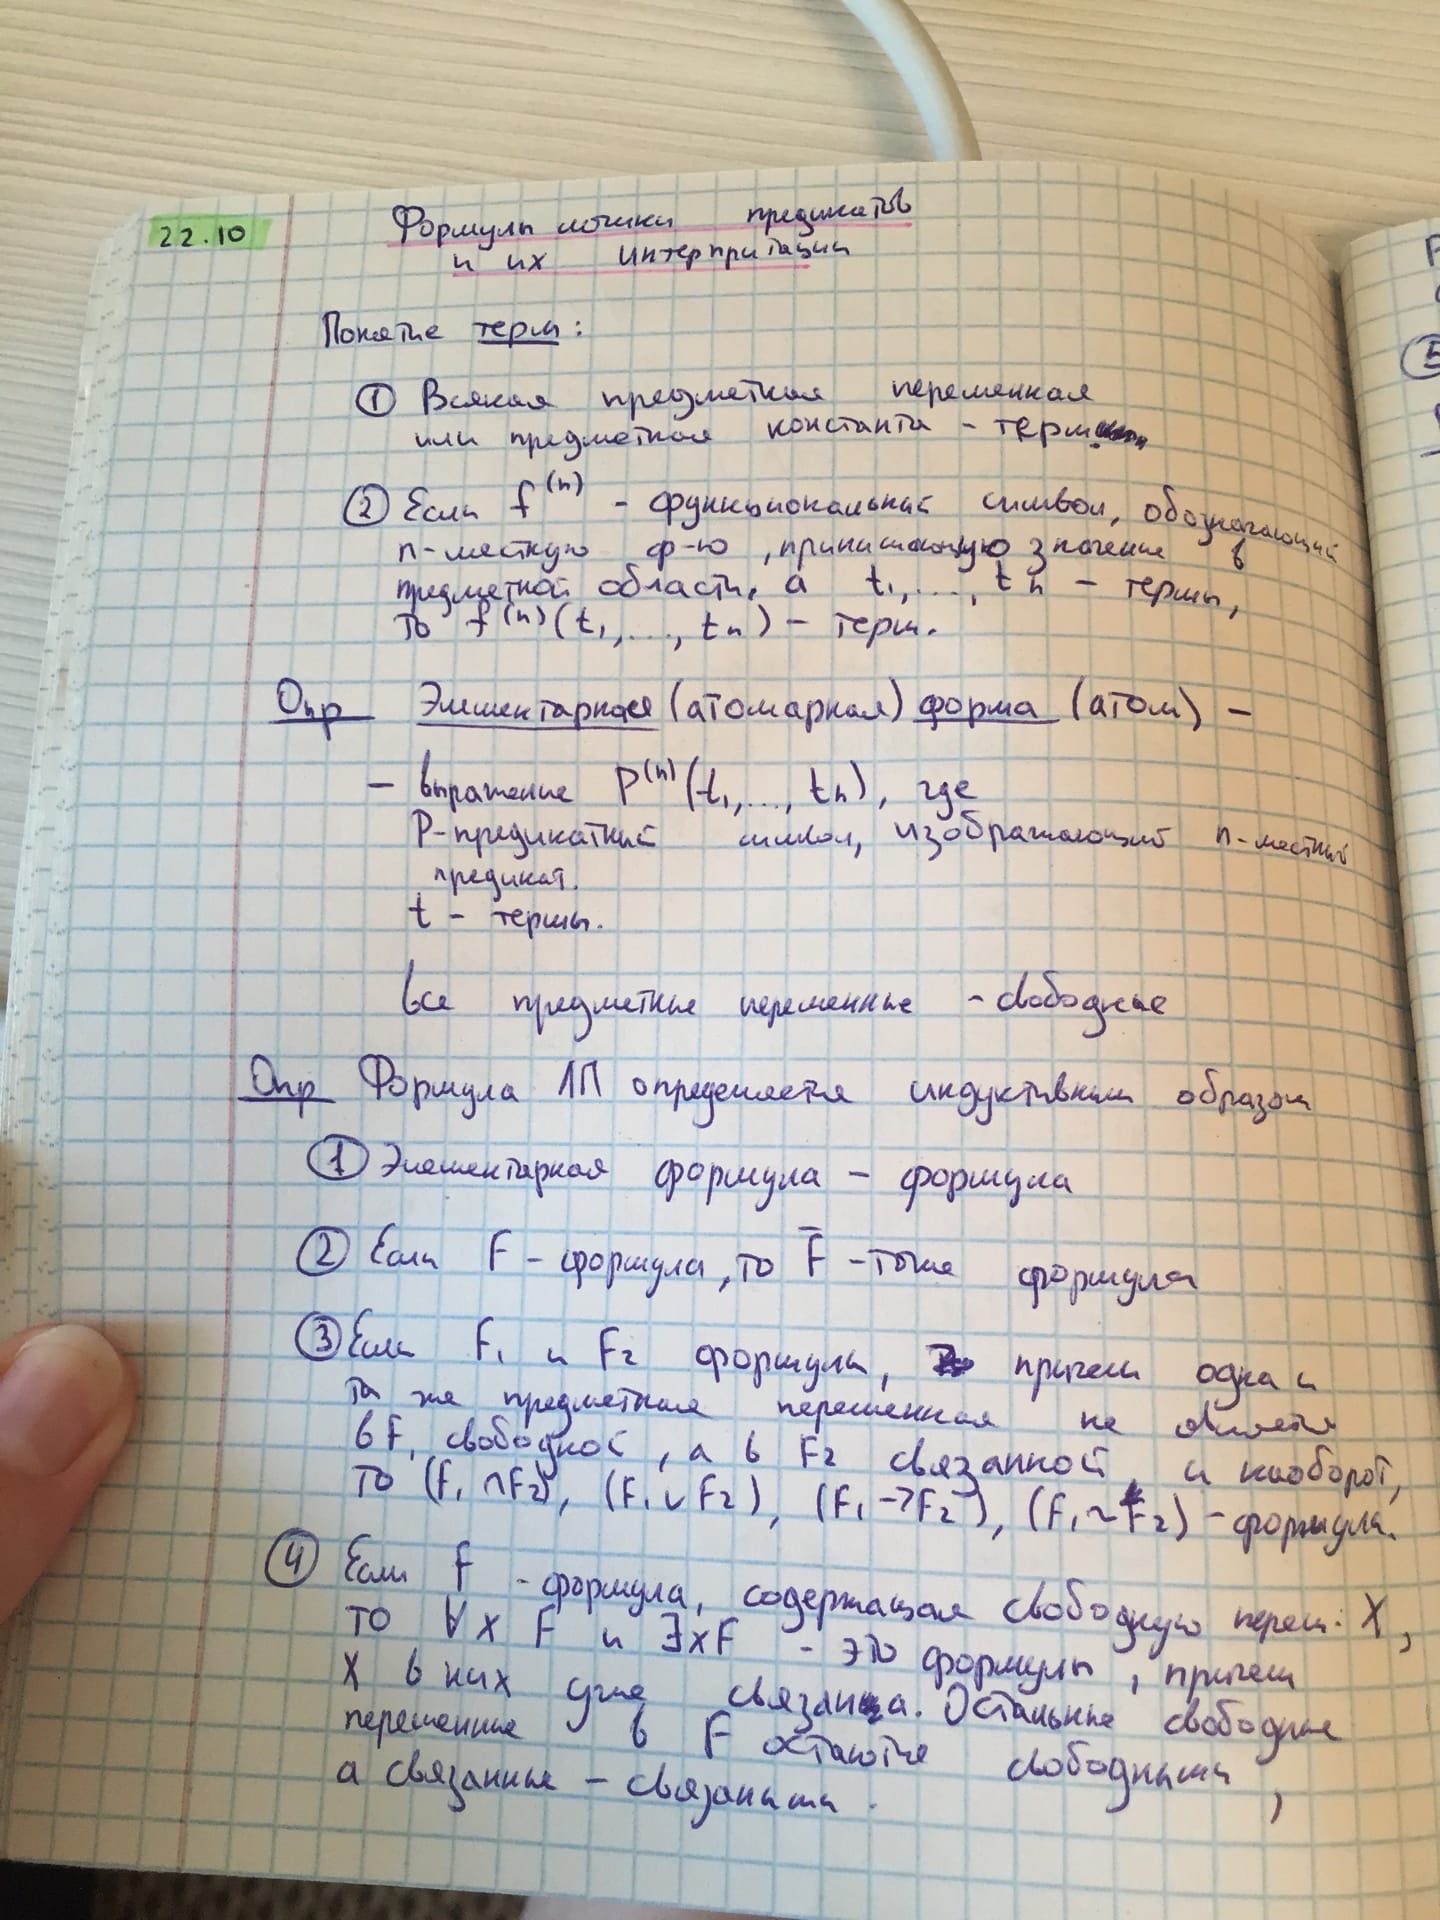 22.10
Формулы логики предикатов
и их интерпритации
Понятие терм:
① Всякая предметная переменная
или предметная константа - терм.
② Если f⁽ⁿ⁾ - функциональный символ, обозначающий
n-местную ф-ю, принимающую значение в
предметной области, а t₁,..., tₙ - термы,
то f⁽ⁿ⁾(t₁,..., tₙ) - терм.
Опр Элементарная (атомарная) форма (атом) -
- выражение P⁽ⁿ⁾(t₁,..., tₙ), где
P-предикатный символ, изображающий n-местный
предикат.
t - термы.
все предметные переменные - свободные
Опр Формула ЛП определяется индуктивным образом
① Элементарная формула - формула
② Если F - формула, то F̅ - тоже формула
③ Если F₁ и F₂ формулы, причем одна и
та же предметная переменная не является
в F₁ свободной, а в F₂ связанной, и наоборот,
то (F₁ ∧ F₂), (F₁ ∨ F₂), (F₁ → F₂), (F₁ ~ F₂) - формула.
④ Если F - формула, содержащая свободную перем. X,
то ∀x F и ∃x F - это формулы, причем
X в них уже связана. Остальные свободные
переменные в F остаются свободными,
а связанные - связаными.
F
5